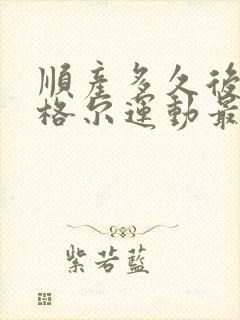 順產多久後
格尔運動最
紫若藍